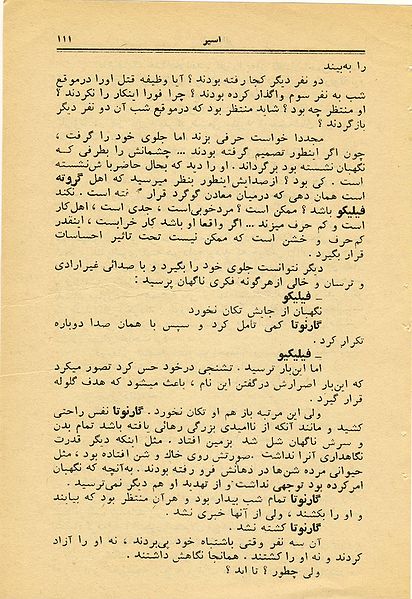 اسیر ۱۱۱
را به‌بیند
دو نفر دیگر کجا رفته بودند ؟ آیا وظیفه قتل اورا درموقع
شب به نفر سوم واگذار کرده بودند ؟ چرا فورا اینکار را نکردند ؟
او منتظر چه بود ؟ شاید منتظر بود که درموقع شب آن دو نفر دیگر
بازگردند ؟
مجددا خواست حرفی بزند اما جلوی خود را گرفت ،
چون اگر اینطور تصمیم گرفته بودند ... چشمانش را بطرفی که
نگهبان نشسته بود برگرداند . او را دید که بحال حاضرباش‌نشسته
است . کی بود ؟ ازصدایش‌اینطور بنظر میرسید که اهل گروته
است همان دهی که درمیان معادن گوگرد قرار گرفته است . نکند
فیلیکو باشد ؟ ممکن است ؟ مردخوبی‌است ، جدی است ، اهل‌کار
است و کم حرف میزند ... اگر واقعا او باشد کار خرابست ، اینقدر
کم‌حرف و خشن است که ممکن نیست تحت تاثیر احساسات
قرار بگیرد .
دیگر نتوانست جلوی خود را بگیرد و با صدائی غیرارادی
و ترسان و خالی ازهرگونه فکری ناگهان پرسید :
ـ فیلیکو
نگهبان از جایش تکان نخورد
گارنوتا کمی تامل کرد و سپس با همان صدا دوباره
تکرار کرد .
ـ فیلیکیو
اما این‌بار ترسید . تشنجی درخود حس کرد تصور میکرد
که این‌بار اصرارش درگفتن این نام ، باعث میشود که هدف گلوله
قرار گیرد .
ولی این مرتبه باز هم او تکان نخورد . گارنوتا نفس راحتی
کشید و مانند آنکه از ناامیدی بزرگی رهائی یافته باشد تمام بدن
و سرش ناگهان شل شد بزمین افتاد . مثل اینکه دیگر قدرت
نگاهداری آنرا نداشت . صورتش روی خاك و شن افتاده بود ، مثل
حیوانی مرده شن‌ها در دهانش فرو رفته بودند . به‌آنچه که نگهبان
امرکرده بود توجهی نداشت و از تهدید او هم دیگر نمی‌ترسید .
گارنوتا تمام شب بیدار بود و هرآن منتظر بود که بیایند
و او را بکشند ، ولی از آنها خبری نشد .
گارنوتا کشته نشد .
آن سه نفر وقتی باشتباه خود پی‌بردند ، نه او را آزاد
کردند و نه او را کشتند . همانجا نگاهش داشتند .
ولی چطور ؟ تا ابد ؟